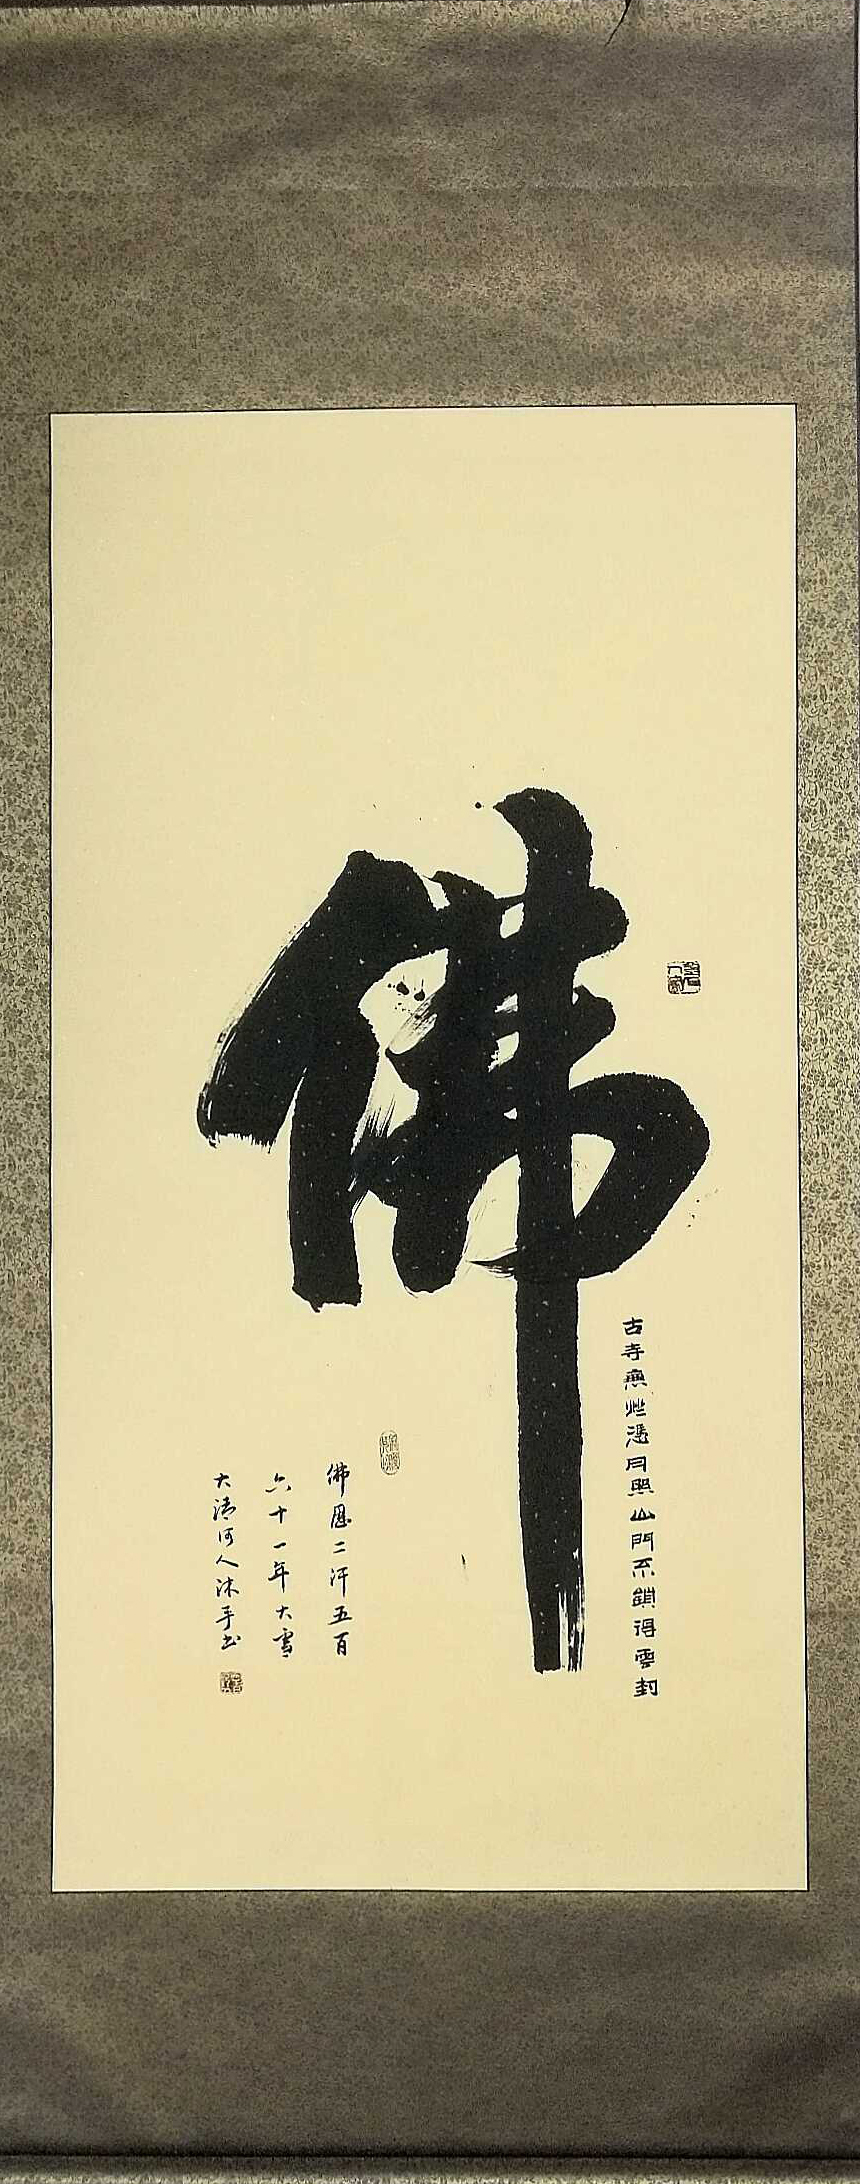 佛
古寺無灯憑月照山門不鎖得雲封
佛历二仟五百
六十一年大雪
大清河人沐手书